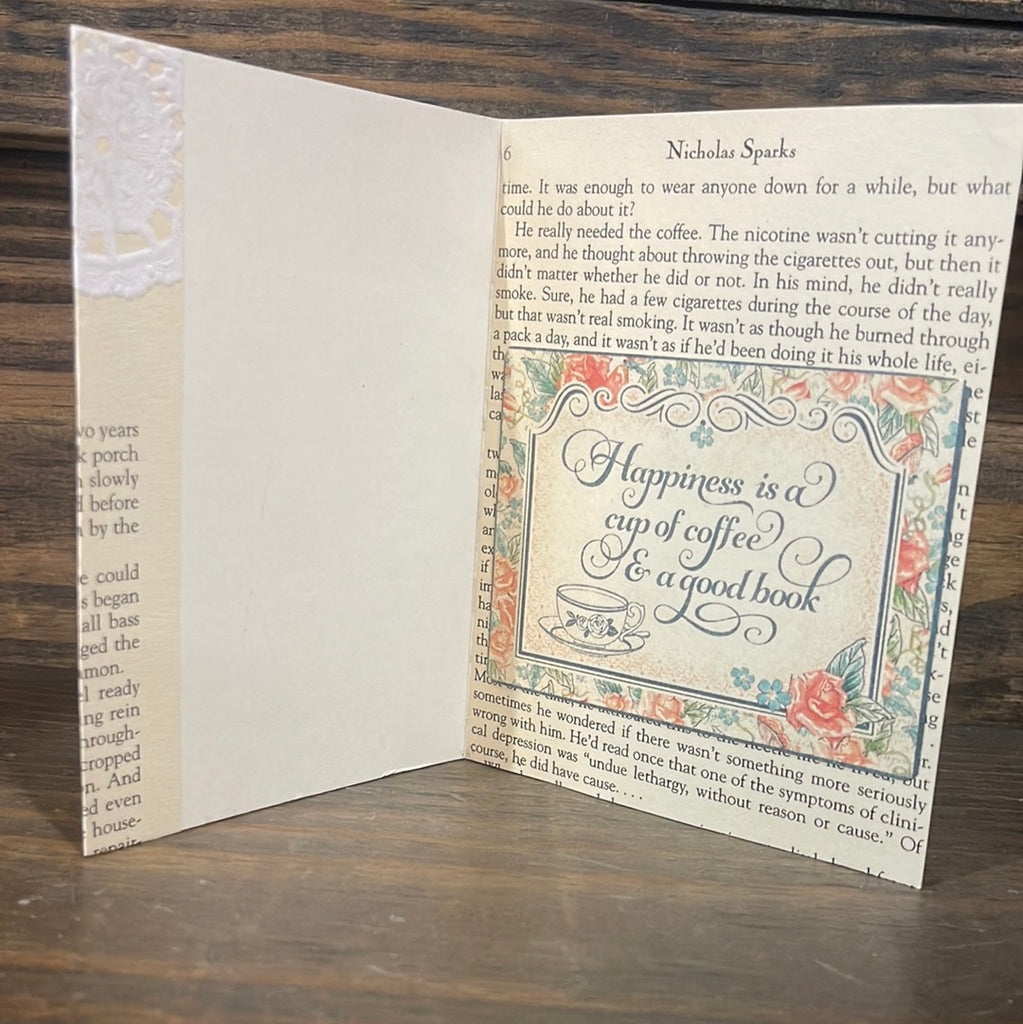 vo years
porch
slowly
before
by the
e could
s began
all bass
ged the
mon.
ready
ng rein
hrough-
ropped
n. And
ed even
house-
repair-
6
Nicholas Sparks
time. It was enough to wear anyone down for a while, but what
could he do about it?
He really needed the coffee. The nicotine wasn't cutting it any-
more, and he thought about throwing the cigarettes out, but then it
didn't matter whether he did or not. In his mind, he didn't really
smoke. Sure, he had a few cigarettes during the course of the day,
but that wasn't real smoking. It wasn't as though he burned through
a pack a day, and it wasn't as if he'd been doing it his whole life, ei-
Happiness is a
cup of coffee
& a good book
sometimes he wondered if there wasn't something more seriously
wrong with him. He'd read once that one of the symptoms of clini-
cal depression was "undue lethargy, without reason or cause." Of
course, he did have cause. . . .